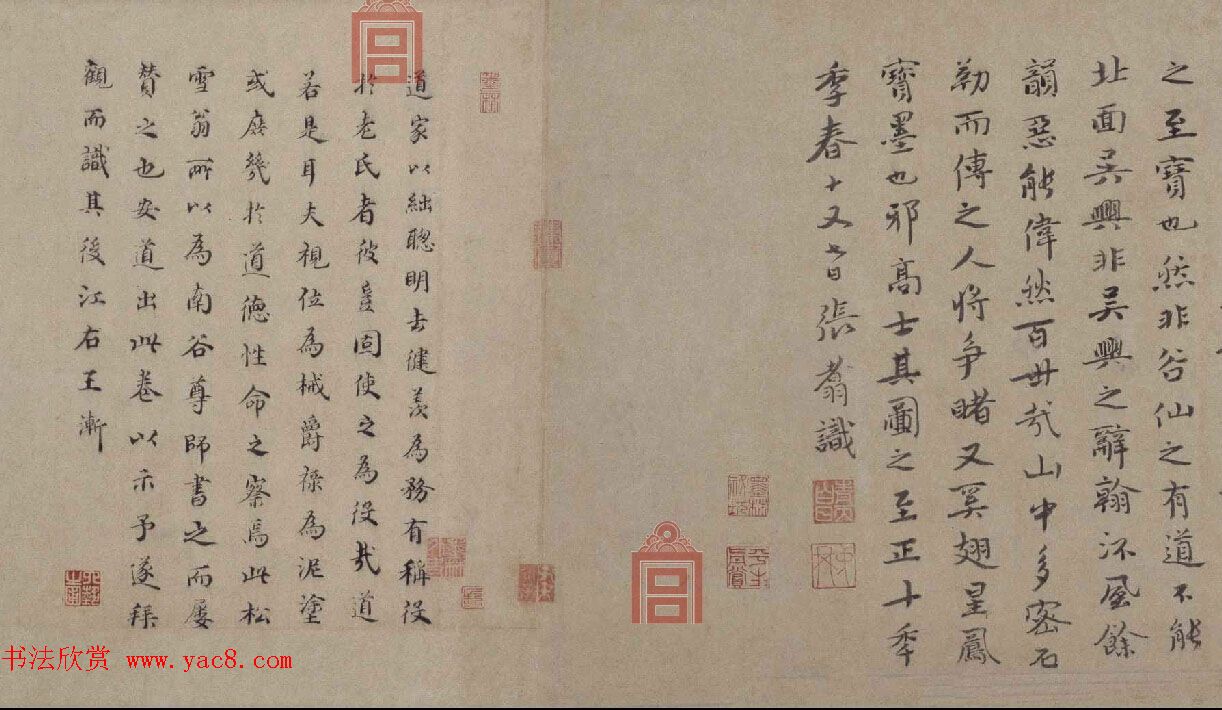 之至寶也然非谷仙之有道不能
北面吴興非吴興之辭翰流風餘
韻惡能偉然百世哉山中多密石
勒而傳之人將争睹又奚翅星鳳
寶墨也邪高士其圖之至正十年
季春十又 日張翥識
道家以絀聰明去健羡為務有稱役
於老氏者彼豈固使之為役哉道
若是耳夫視位為械爵祿為泥塗
或庶幾於道德性命之察焉此松
雪翁所以為南谷尊師書之而屢
贊之也安道出此卷以示予遂拜
觀而識其後江右王漸
书法欣赏 www.yac8.com